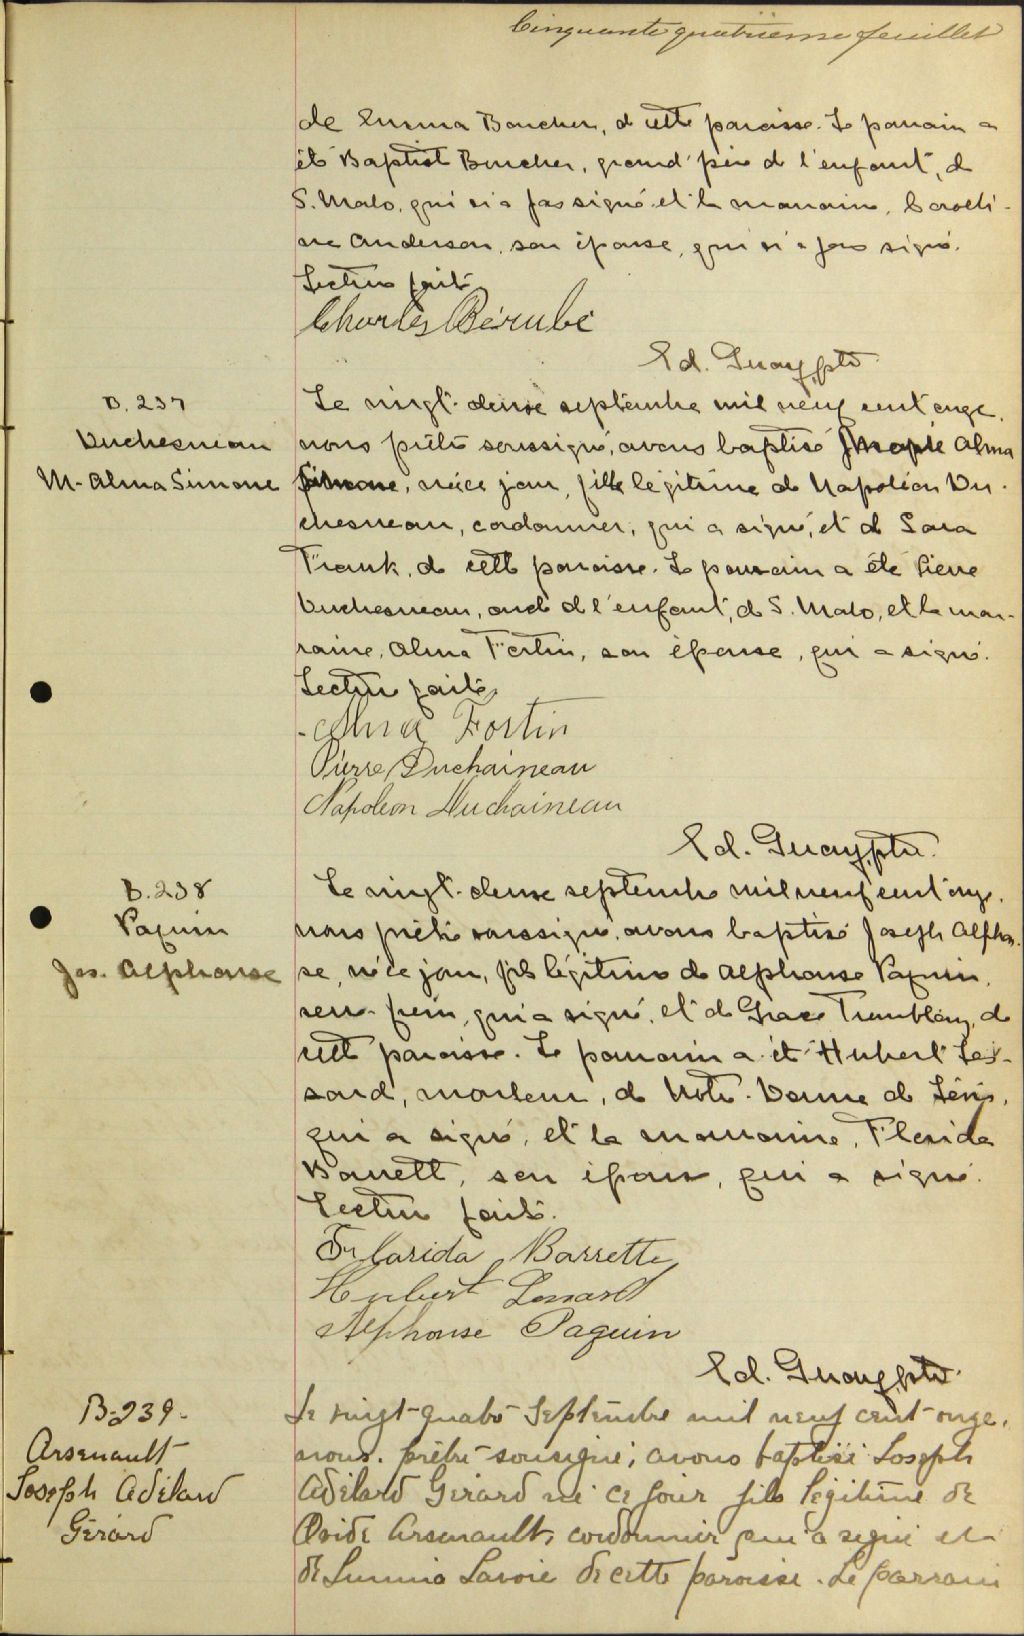 Cinquante quatrième feuillet
de Emma Boucher, de cette paroisse. Le parrain a
été Baptist Boucher, grand'père de l'enfant, de
S. Malo, qui n'a pas signé et la marraine, Caroli-
ne Anderson, son épouse, qui n'a pas signé.
Lecture faite
Charles Bérubé
Ed. Guay, ptre
B. 237
Duchesneau
M- Alma Simone
Le vingt-deux septembre mil neuf cent onze,
nous prêtre soussigné, avons baptisé Marie Alma
Simone, née ce jour, fille légitime de Napoléon Du-
chesneau, cordonnier, qui a signé, et de Sara
Frank, de cette paroisse. Le parrain a été Pierre
Duchesneau, oncle de l'enfant, de S. Malo, et la mar-
raine, Alma Fortin, son épouse, qui a signé.
Lecture faite
Alma Fortin
Pierre Duchaineau
Napoleon Duchaineau
Ed. Guay, ptre.
B. 238
Paquin
Jos. Alphonse
Le vingt-deux septembre mil neuf cent onze,
nous prêtre soussigné, avons baptisé Joseph Alphon-
se, né ce jour, fils légitime de Alphonse Paquin,
serre-frein, qui a signé, et de Grace Tremblay, de
cette paroisse. Le parrain a été Hubert Les-
sard, mouleur, de Notre-Dame de Lévis,
qui a signé, et la marraine, Florida
Barrett, son épouse, qui a signé.
Lecture faite.
Florida Barrette
Hubert Lessard
Alphonse Paquin
Ed. Guay, ptre.
B-239-
Arsenault
Joseph Adélard
Gérard
Le vingt-quatre Septembre mil neuf cent-onze,
nous, prêtre-soussigné, avons baptisé Joseph
Adélard Gérard né ce jour fils légitime de
Ovide Arsenault, cordonnier qui a signé et
de Lavoie de cette paroisse. Le parrain